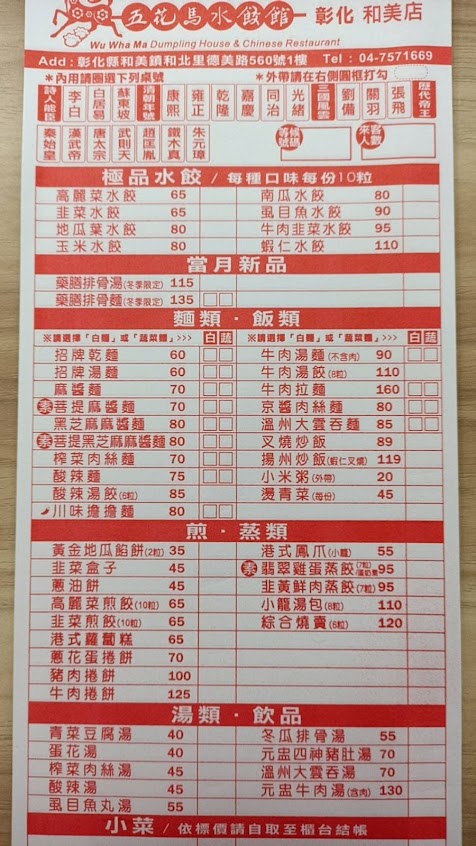 五花馬水餃館 - 彰化 和美店
Wu Wha Ma Dumpling House & Chinese Restaurant
Add：彰化縣和美鎮和北里德美路560號1樓 Tel：04-7571669
＊內用請圈選下列桌號 ＊外帶請在右側圓框打勾
詩人能臣 李白 白居易 蘇東坡 清朝年號 康熙 雍正 乾隆 嘉慶 同治 光緒 三國風雲 劉備 關羽 張飛 歷代帝王
秦始皇 漢武帝 唐太宗 武則天 趙匡胤 鐵木真 朱元璋 等候號碼 來客人數
極品水餃 / 每種口味每份10粒
高麗菜水餃 65 南瓜水餃 80
韭菜水餃 65 虱目魚水餃 90
地瓜葉水餃 80 牛肉韭菜水餃 95
玉米水餃 80 蝦仁水餃 110
當月新品
藥膳排骨湯(冬季限定) 115
藥膳排骨麵(冬季限定) 135
麵類．飯類
※請選擇「白麵」或「蔬菜麵」>>> 白 蔬 ※請選擇「白麵」或「蔬菜麵」>>> 白 蔬
招牌乾麵 60 牛肉湯麵(不含肉) 90
招牌湯麵 60 牛肉湯餃(8粒) 110
麻醬麵 70 牛肉拉麵 160
素 菩提麻醬麵 70 京醬肉絲麵 80
黑芝麻麻醬麵 80 溫州大雲吞麵 85
素 菩提黑芝麻麻醬麵 80 叉燒炒飯 89
榨菜肉絲麵 70 揚州炒飯(蝦仁叉燒) 119
酸辣麵 75 小米粥(外帶) 20
酸辣湯餃(6粒) 85 燙青菜(每份) 45
川味擔擔麵 80
煎．蒸類
黃金地瓜餡餅(2粒) 35 港式鳳爪(小籠) 55
韭菜盒子 45 素 翡翠雞蛋蒸餃(7粒) 95
蔥油餅 45 韭黃鮮肉蒸餃(7粒) 95
高麗菜煎餃(10粒) 65 小籠湯包(8粒) 110
韭菜煎餃(10粒) 65 綜合燒賣(6粒) 120
港式蘿蔔糕 65
蔥花蛋捲餅 70
豬肉捲餅 100
牛肉捲餅 125
湯類．飲品
青菜豆腐湯 40 冬瓜排骨湯 55
蛋花湯 40 元盅四神豬肚湯 70
榨菜肉絲湯 45 溫州大雲吞湯 70
酸辣湯 45 元盅牛肉湯(含肉) 130
虱目魚丸湯 55
小菜 / 依標價請自取至櫃台結帳